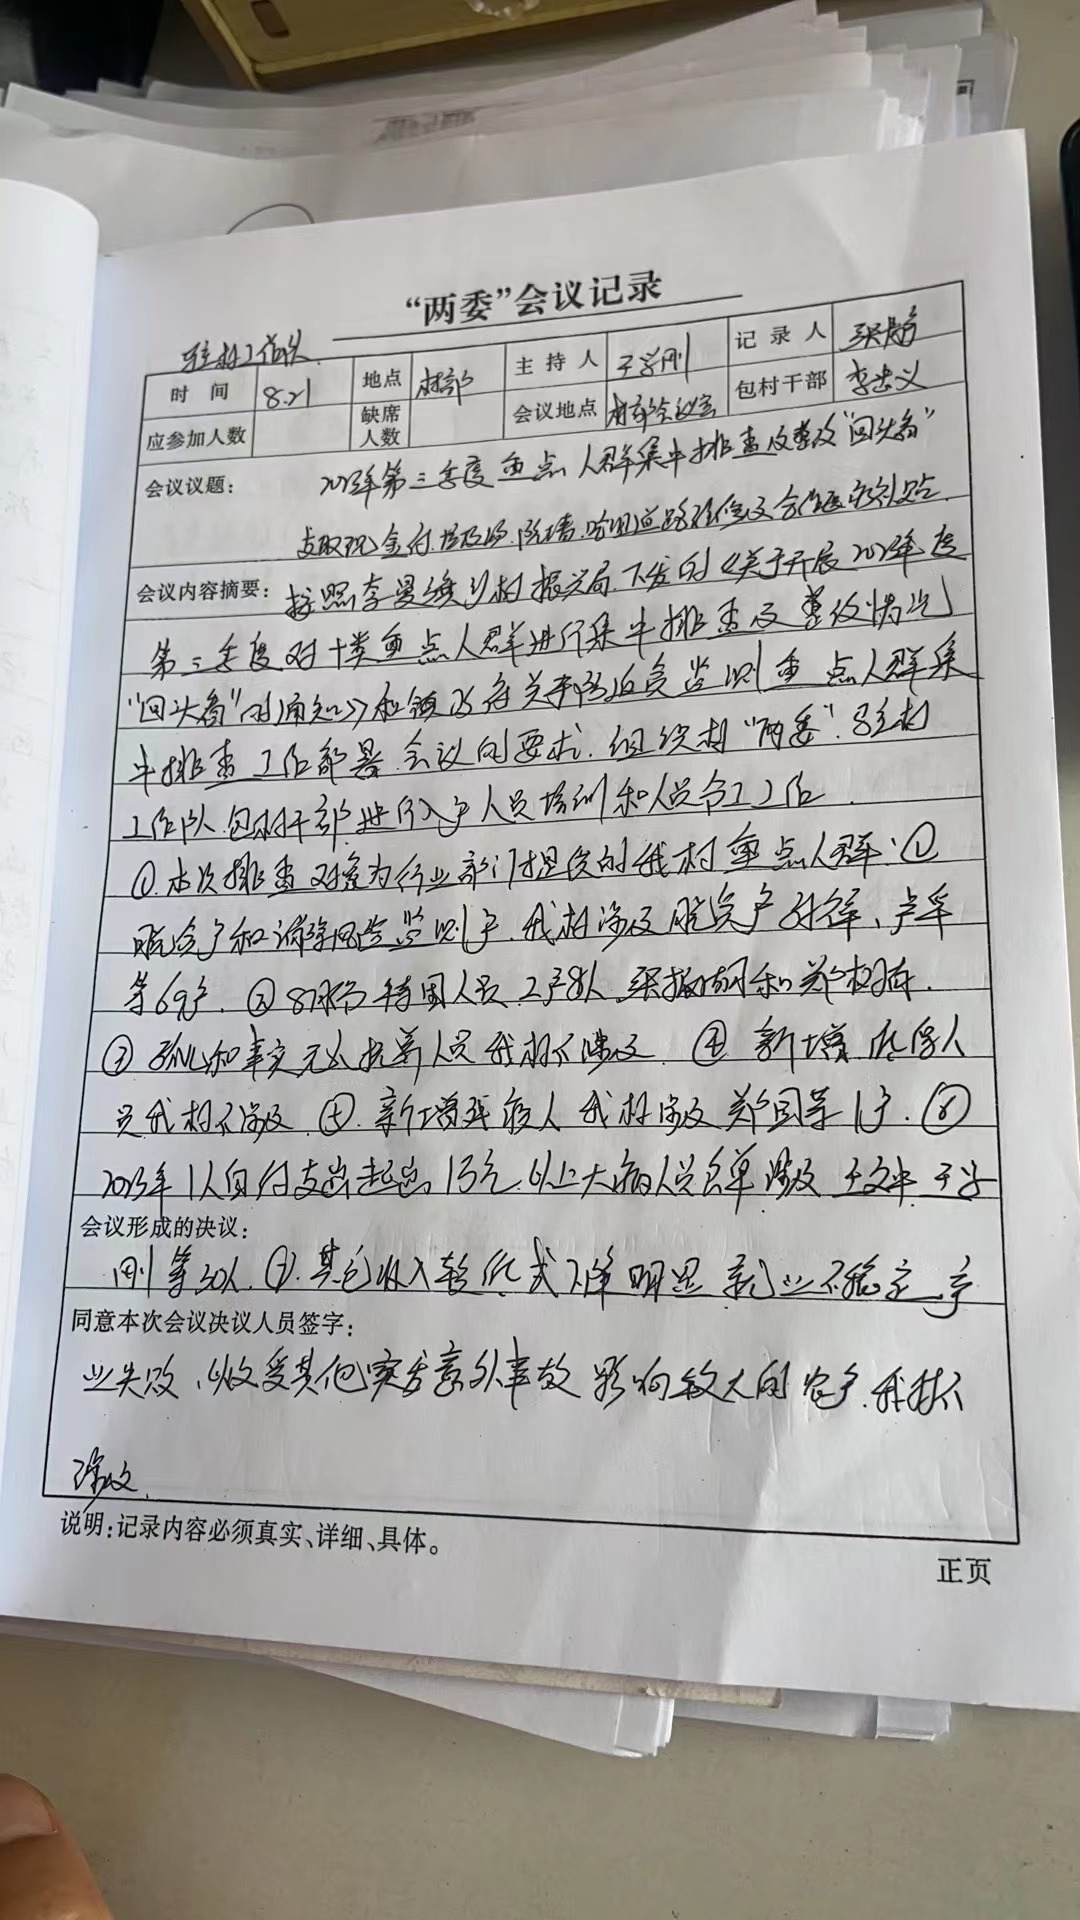 “两委”会议记录
驻村工作队
时 间 8.21 地点 村部 主 持 人 于学刚 记 录 人
应参加人数 缺席人数 会议地点 村部会议室 包村干部 李忠义
会议议题: 2023年第三季度重点人群集中排查及整改“回头看”
支取现金付垃圾场
会议内容摘要: 按照 乡村振兴局下发的《关于开展2023年度
第三季度对十类重点人群进行集中排查及整改情况
“回头看”的通知》和镇政府关于防返贫监测重点人群集
中排查工作部署会议的要求.组织村“两委”.驻村
工作队.包村干部进行入户人员培训和人员分工工作.
①.本次排查对象为行业部门提供的我村重点人群:①
脱贫户和消除风险监测户.我村涉及脱贫户
等69户. ② 特困人员2户8人
③ 孤儿和事实无人抚养人员我村不涉及. ④ 新增低保人
员我村不涉及. ⑤.新增残疾人我村涉及 1户. ⑥
2023年1人自付支出起点1万元以上大病人员名单涉及于文中 于学
会议形成的决议:
刚等30人.⑦.其它收入较低或下降明显就业不稳定.产
同意本次会议决议人员签字:
业失败.以及受其他突发意外事故影响较大的农户.我村不
涉及.
说明:记录内容必须真实、详细、具体。
正页